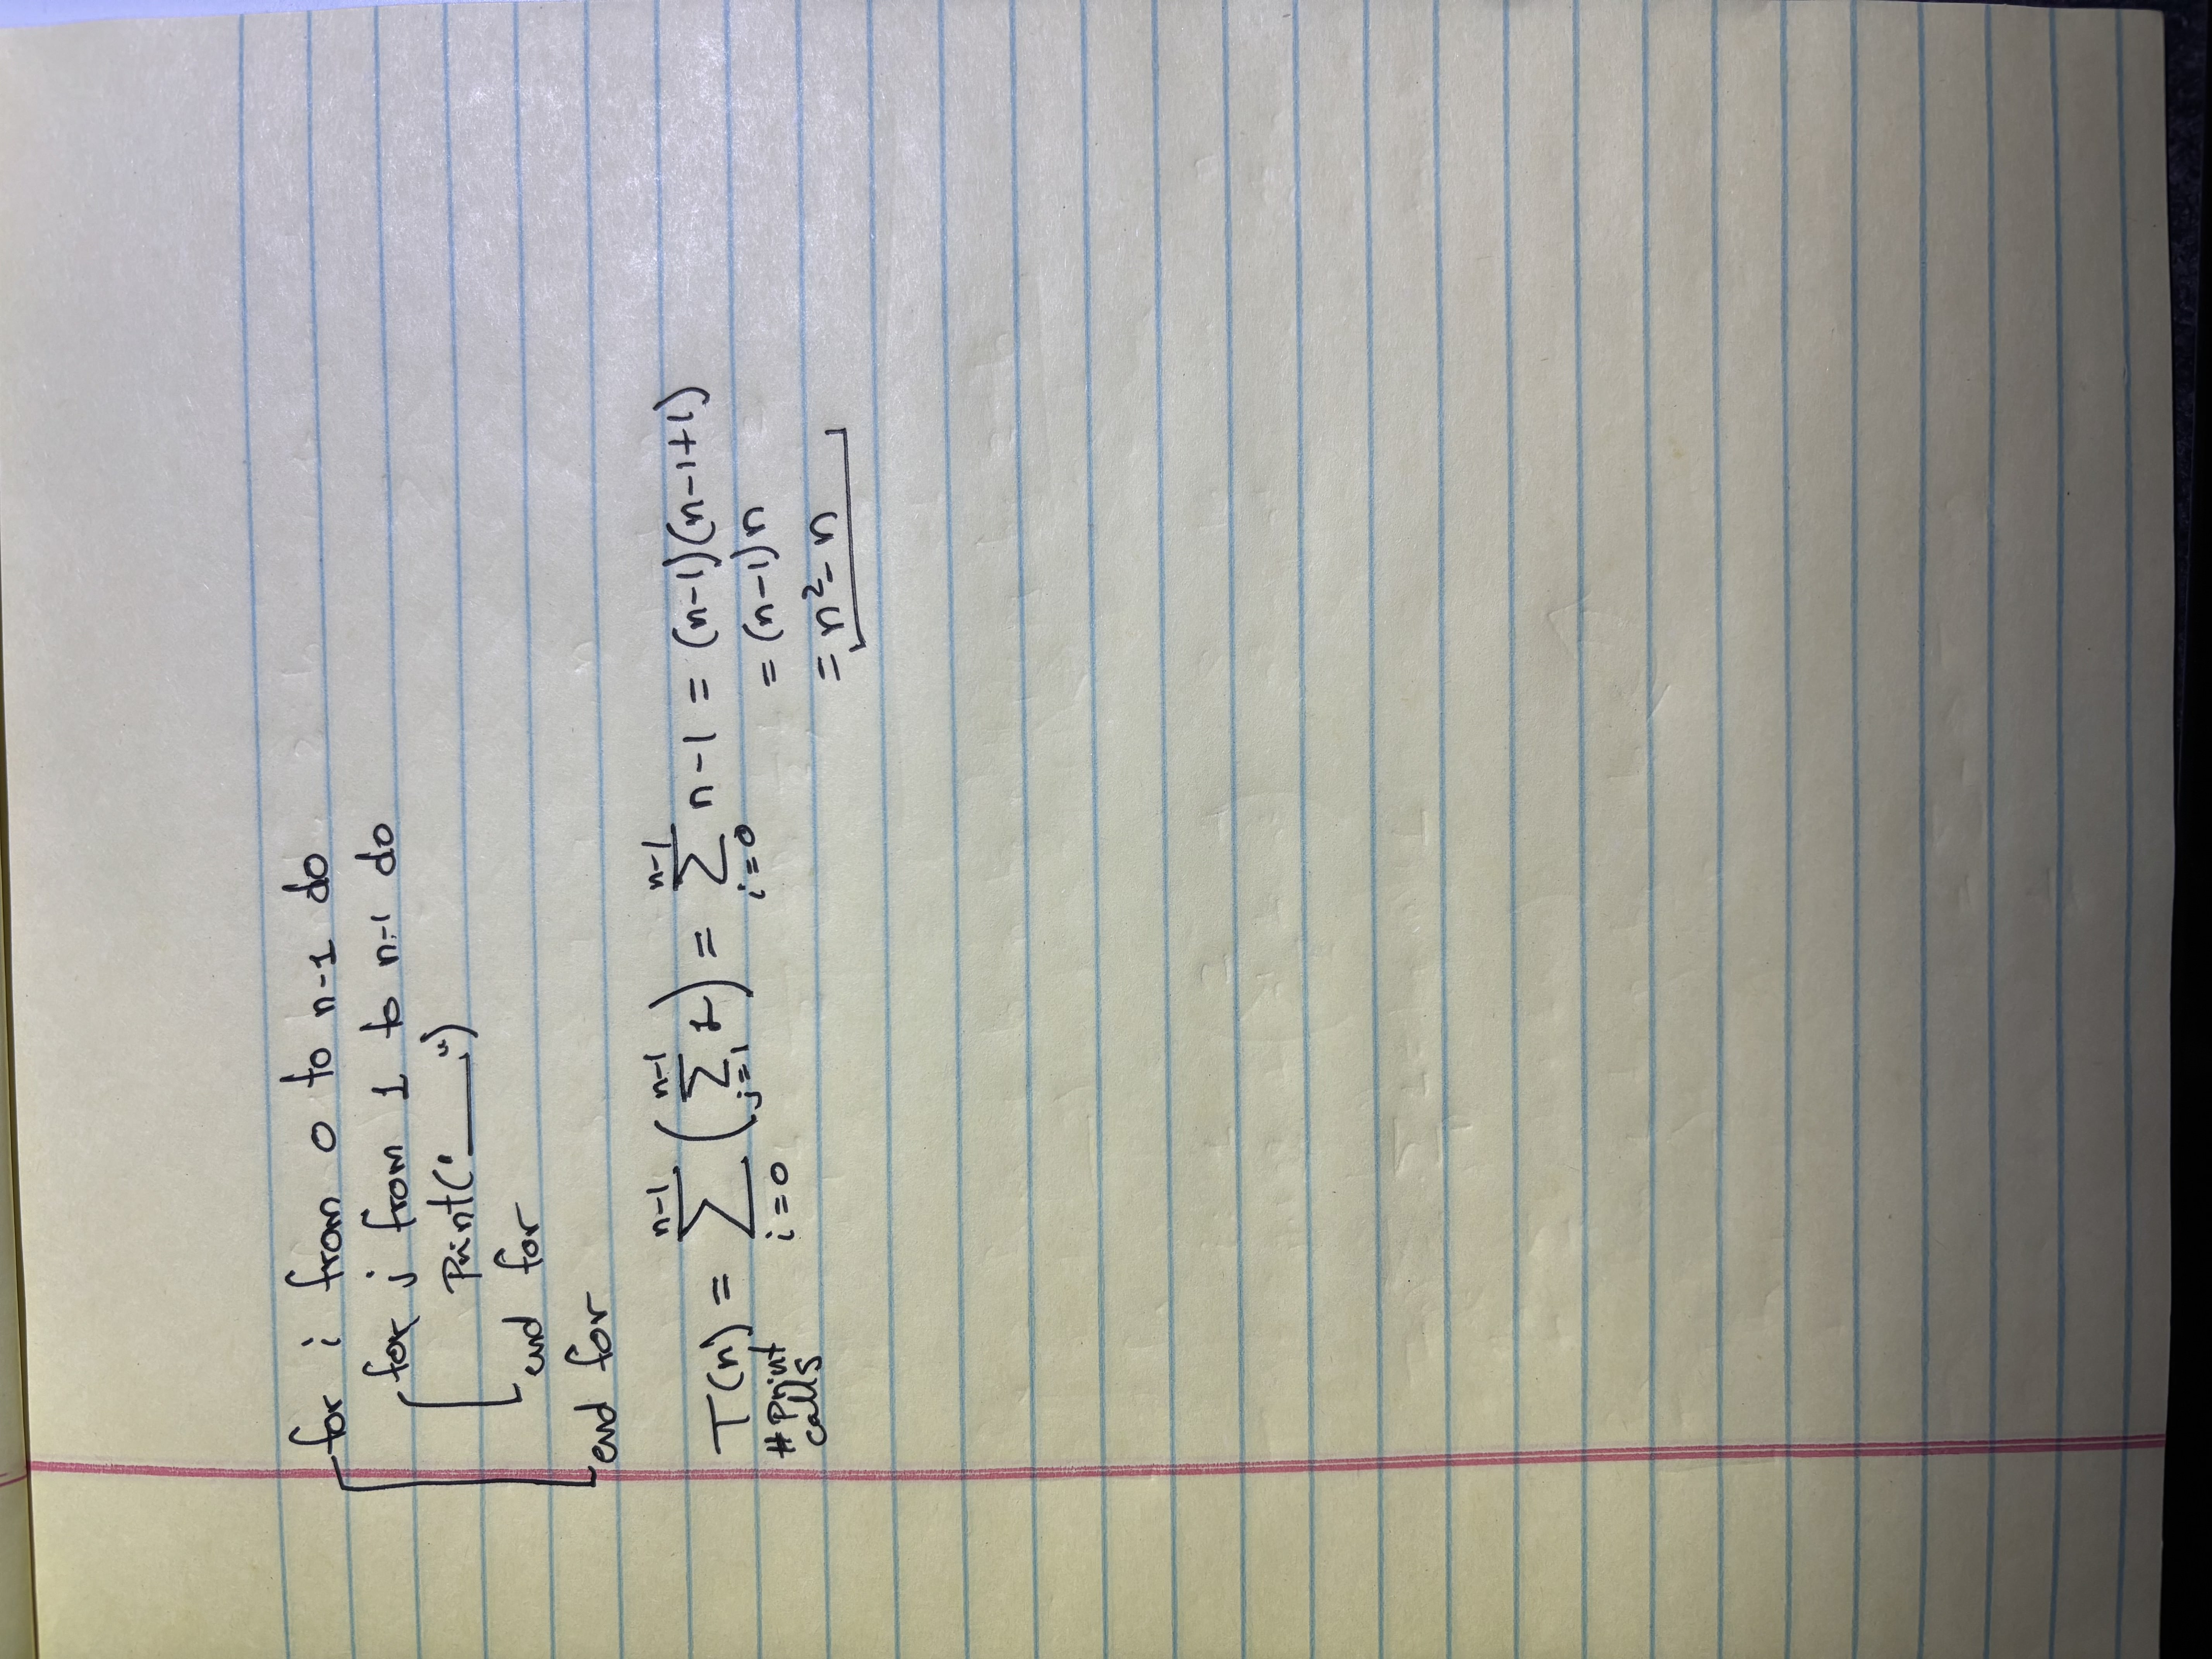 for i from 0 to n-1 do
for j from 1 to n-1 do
Print("____")
end for
end for
T(n) = \sum_{i=0}^{n-1} ( \sum_{j=1}^{n-1} 1 ) = \sum_{i=0}^{n-1} n-1 = (n-1)(n-1+1)
# Print calls
= (n-1)n
= n²-n